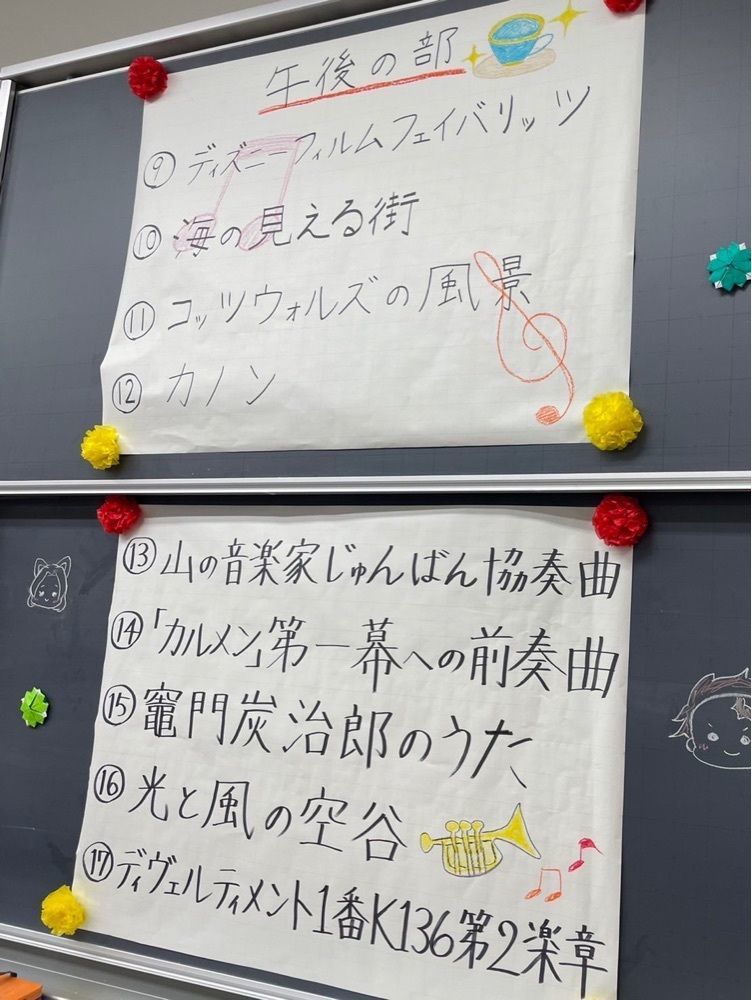 午後の部
⑨ ディズニーフィルムフェイバリッツ
⑩ 海の見える街
⑪ コッツウォルズの風景
⑫ カノン
⑬ 山の音楽家じゅんばん協奏曲
⑭ 「カルメン」第一幕への前奏曲
⑮ 竈門炭治郎のうた
⑯ 光と風の空谷
⑰ ディヴェルティメント1番K136第2楽章